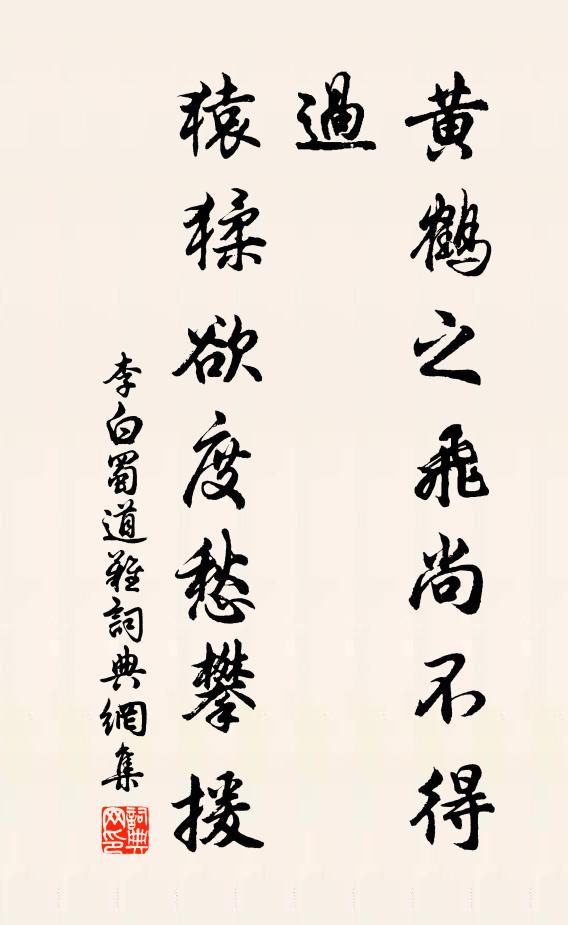 黃鶴之飛尚不得
過
猿猱欲度愁攀援
李白蜀道難詞典網集
詞典
网印